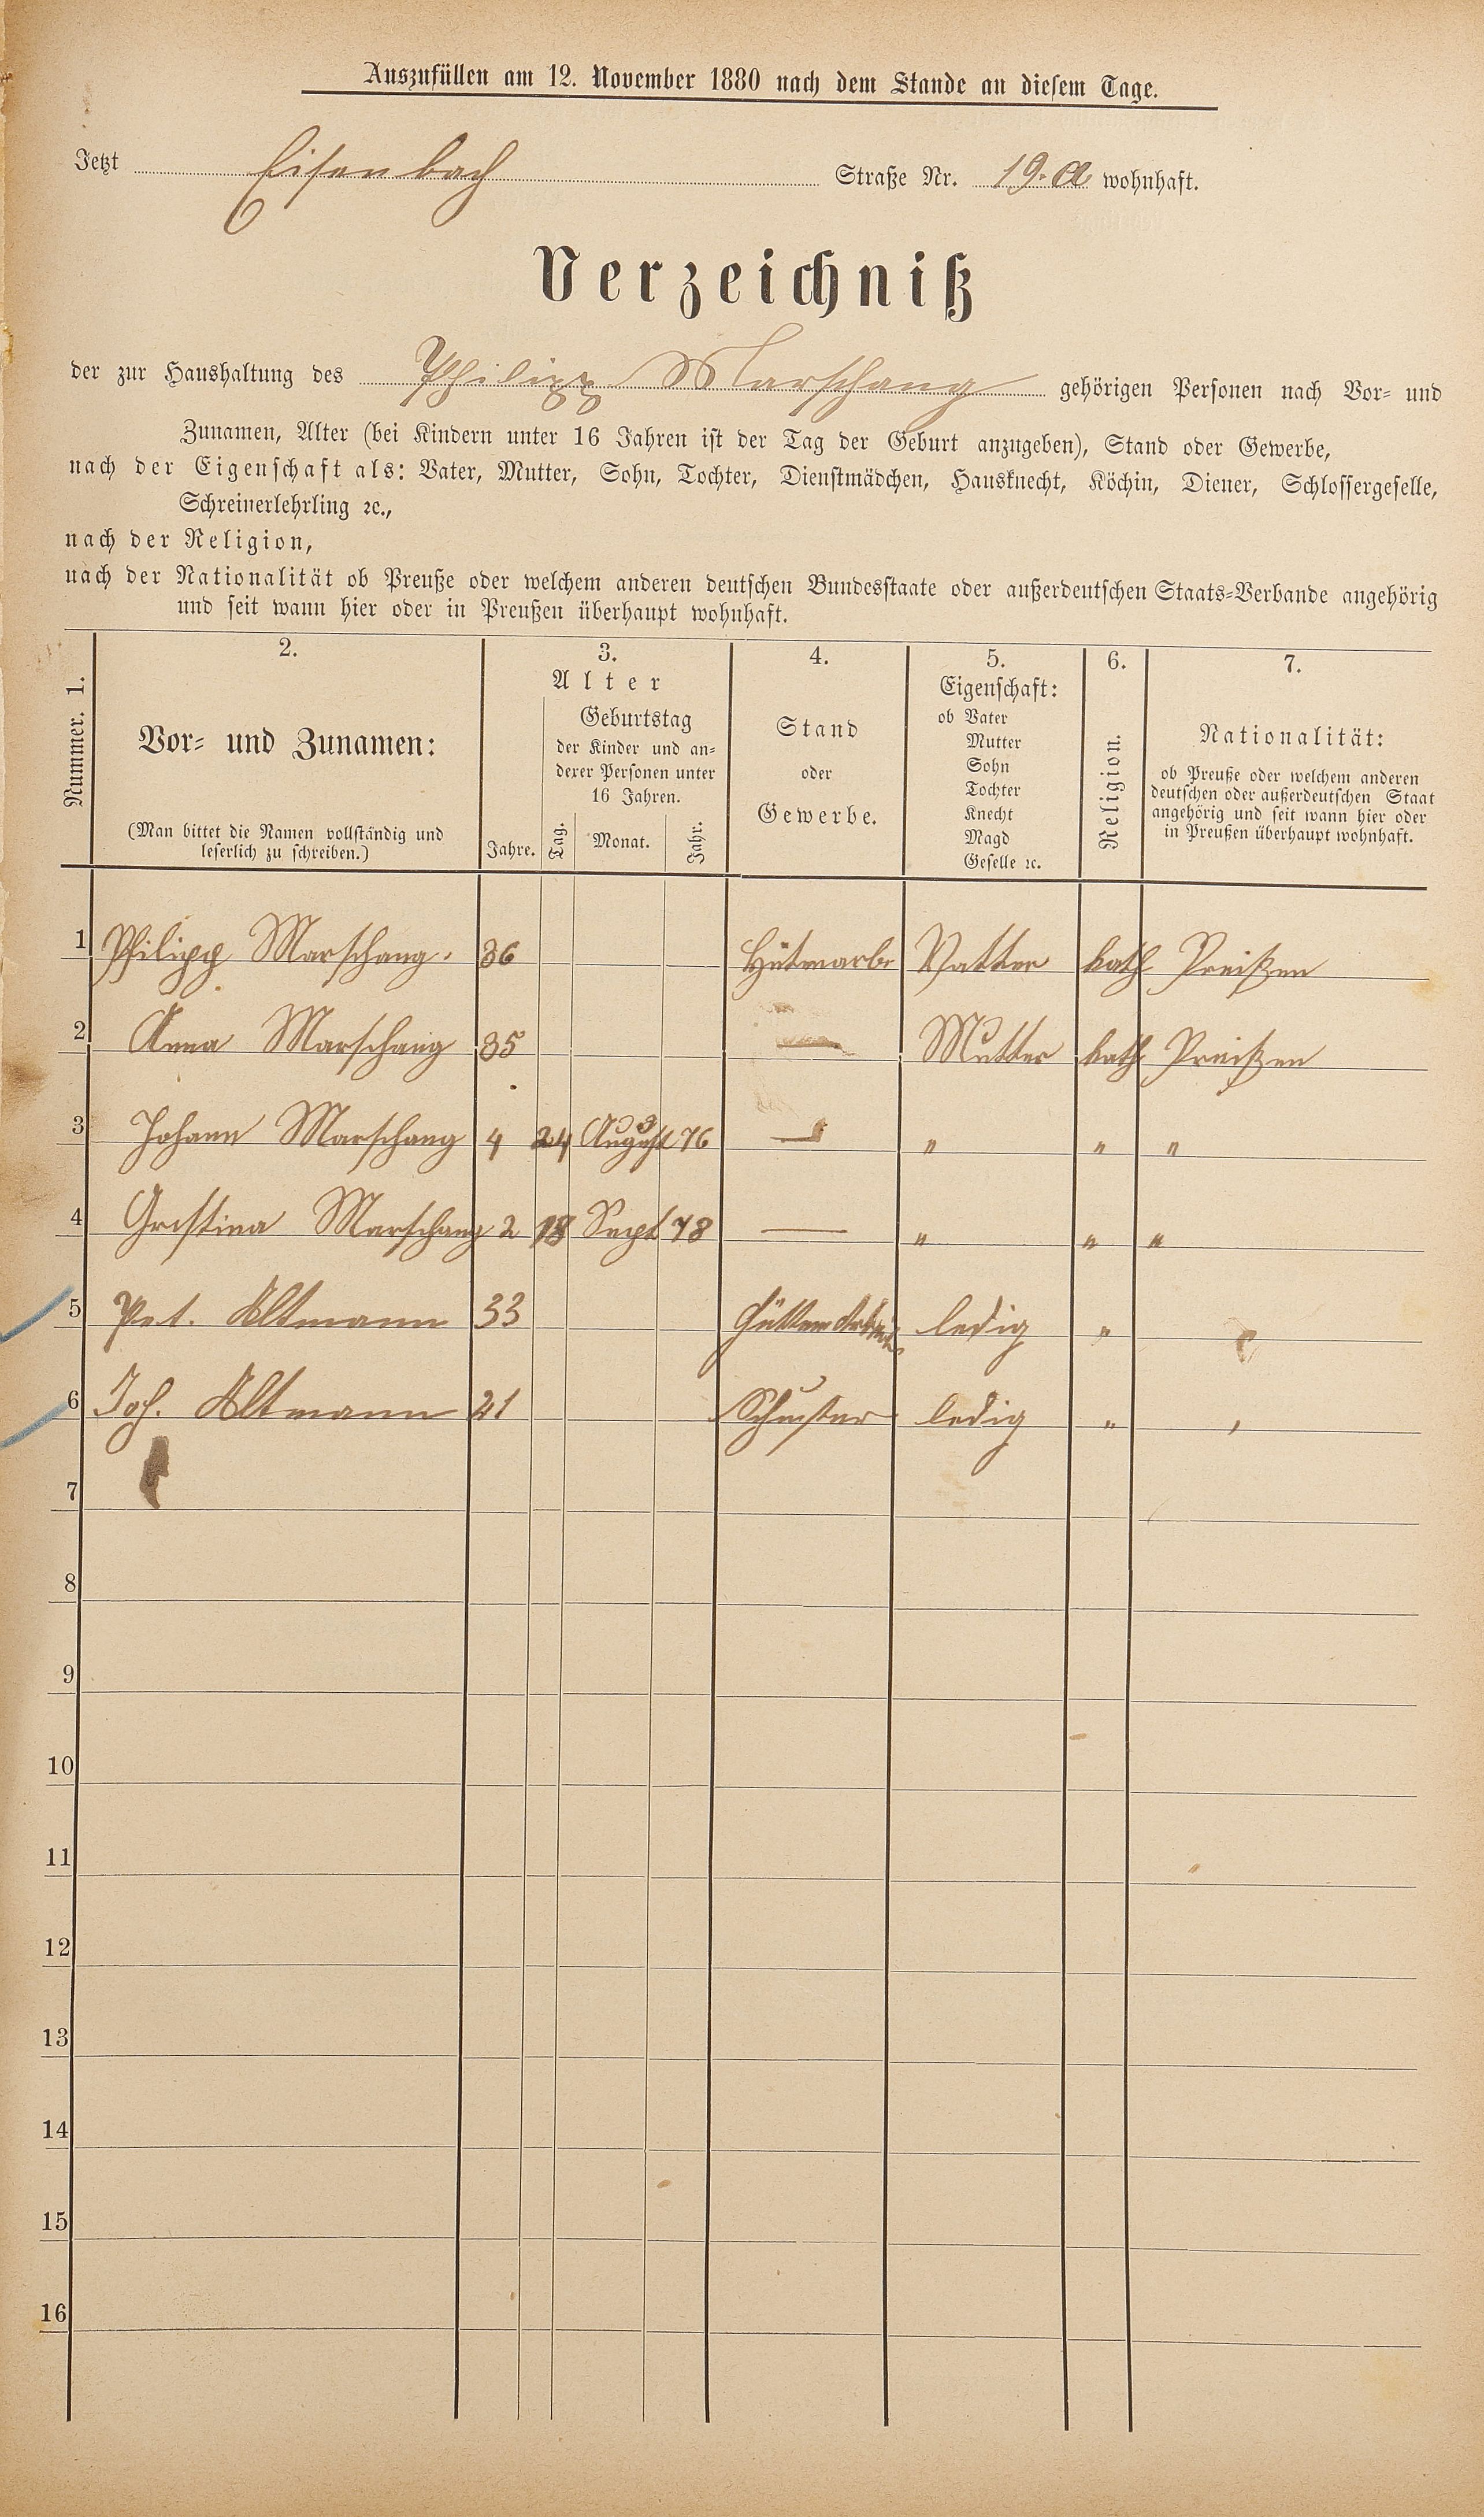 Auszufüllen am 12. November 1880 nach dem Stande an diesem Tage.
Jetzt Eisenbach Straße Nr. 19. a wohnhaft.
Verzeichniß
der zur Haushaltung des Philipp Marschang gehörigen Personen nach Vor- und
Zunamen, Alter (bei Kindern unter 16 Jahren ist der Tag der Geburt anzugeben), Stand oder Gewerbe,
nach der Eigenschaft als: Vater, Mutter, Sohn, Tochter, Dienstmädchen, Hausknecht, Köchin, Diener, Schlossergeselle,
Schreinerlehrling ꝛc.,
nach der Religion,
nach der Nationalität ob Preuße oder welchem anderen deutschen Bundesstaate oder außerdeutschen Staats-Verbande angehörig
und seit wann hier oder in Preußen überhaupt wohnhaft.
Nummer. 1.
2.
Vor- und Zunamen:
(Man bittet die Namen vollständig und
leserlich zu schreiben.)
3.
Alter
Jahre.
Geburtstag
der Kinder und an-
derer Personen unter
16 Jahren.
Tag. Monat. Jahr.
4.
Stand
oder
Gewerbe.
5.
Eigenschaft:
ob Vater
Mutter
Sohn
Tochter
Knecht
Magd
Geselle ꝛc.
6.
Religion.
7.
Nationalität:
ob Preuße oder welchem anderen
deutschen oder außerdeutschen Staat
angehörig und seit wann hier oder
in Preußen überhaupt wohnhaft.
1 Philipp Marschang. 36 Hütenarbe Vatter kath Preißen
2 Anna Marschang 35 — Mutter kath Preißen
3 Johann Marschang 4 24 August 76 — " " "
4 Grestina Marschang 2 18 Sept 78 — " " "
5 Pet. Altmann 33 Hütten Arbeit ledig "
6 Joh. Altmann 21 Schuster ledig " "
7
8
9
10
11
12
13
14
15
16